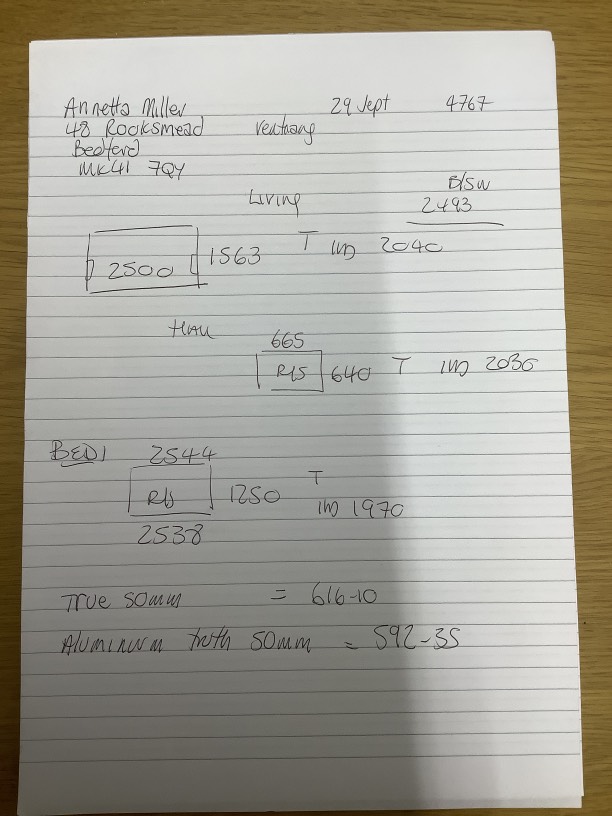 Annetta Miller 29 Sept 4767
48 Rooksmead
Bedford
MK41 7QY
Living B/SW
2493
2500 1563 T IN 2040
Hall
665
R/S 640 T IN 2030
BED1 2544
R/S 1250 T
IN 1970
2538
True 50mm = 616-10
Aluminum truth 50mm = 592-35